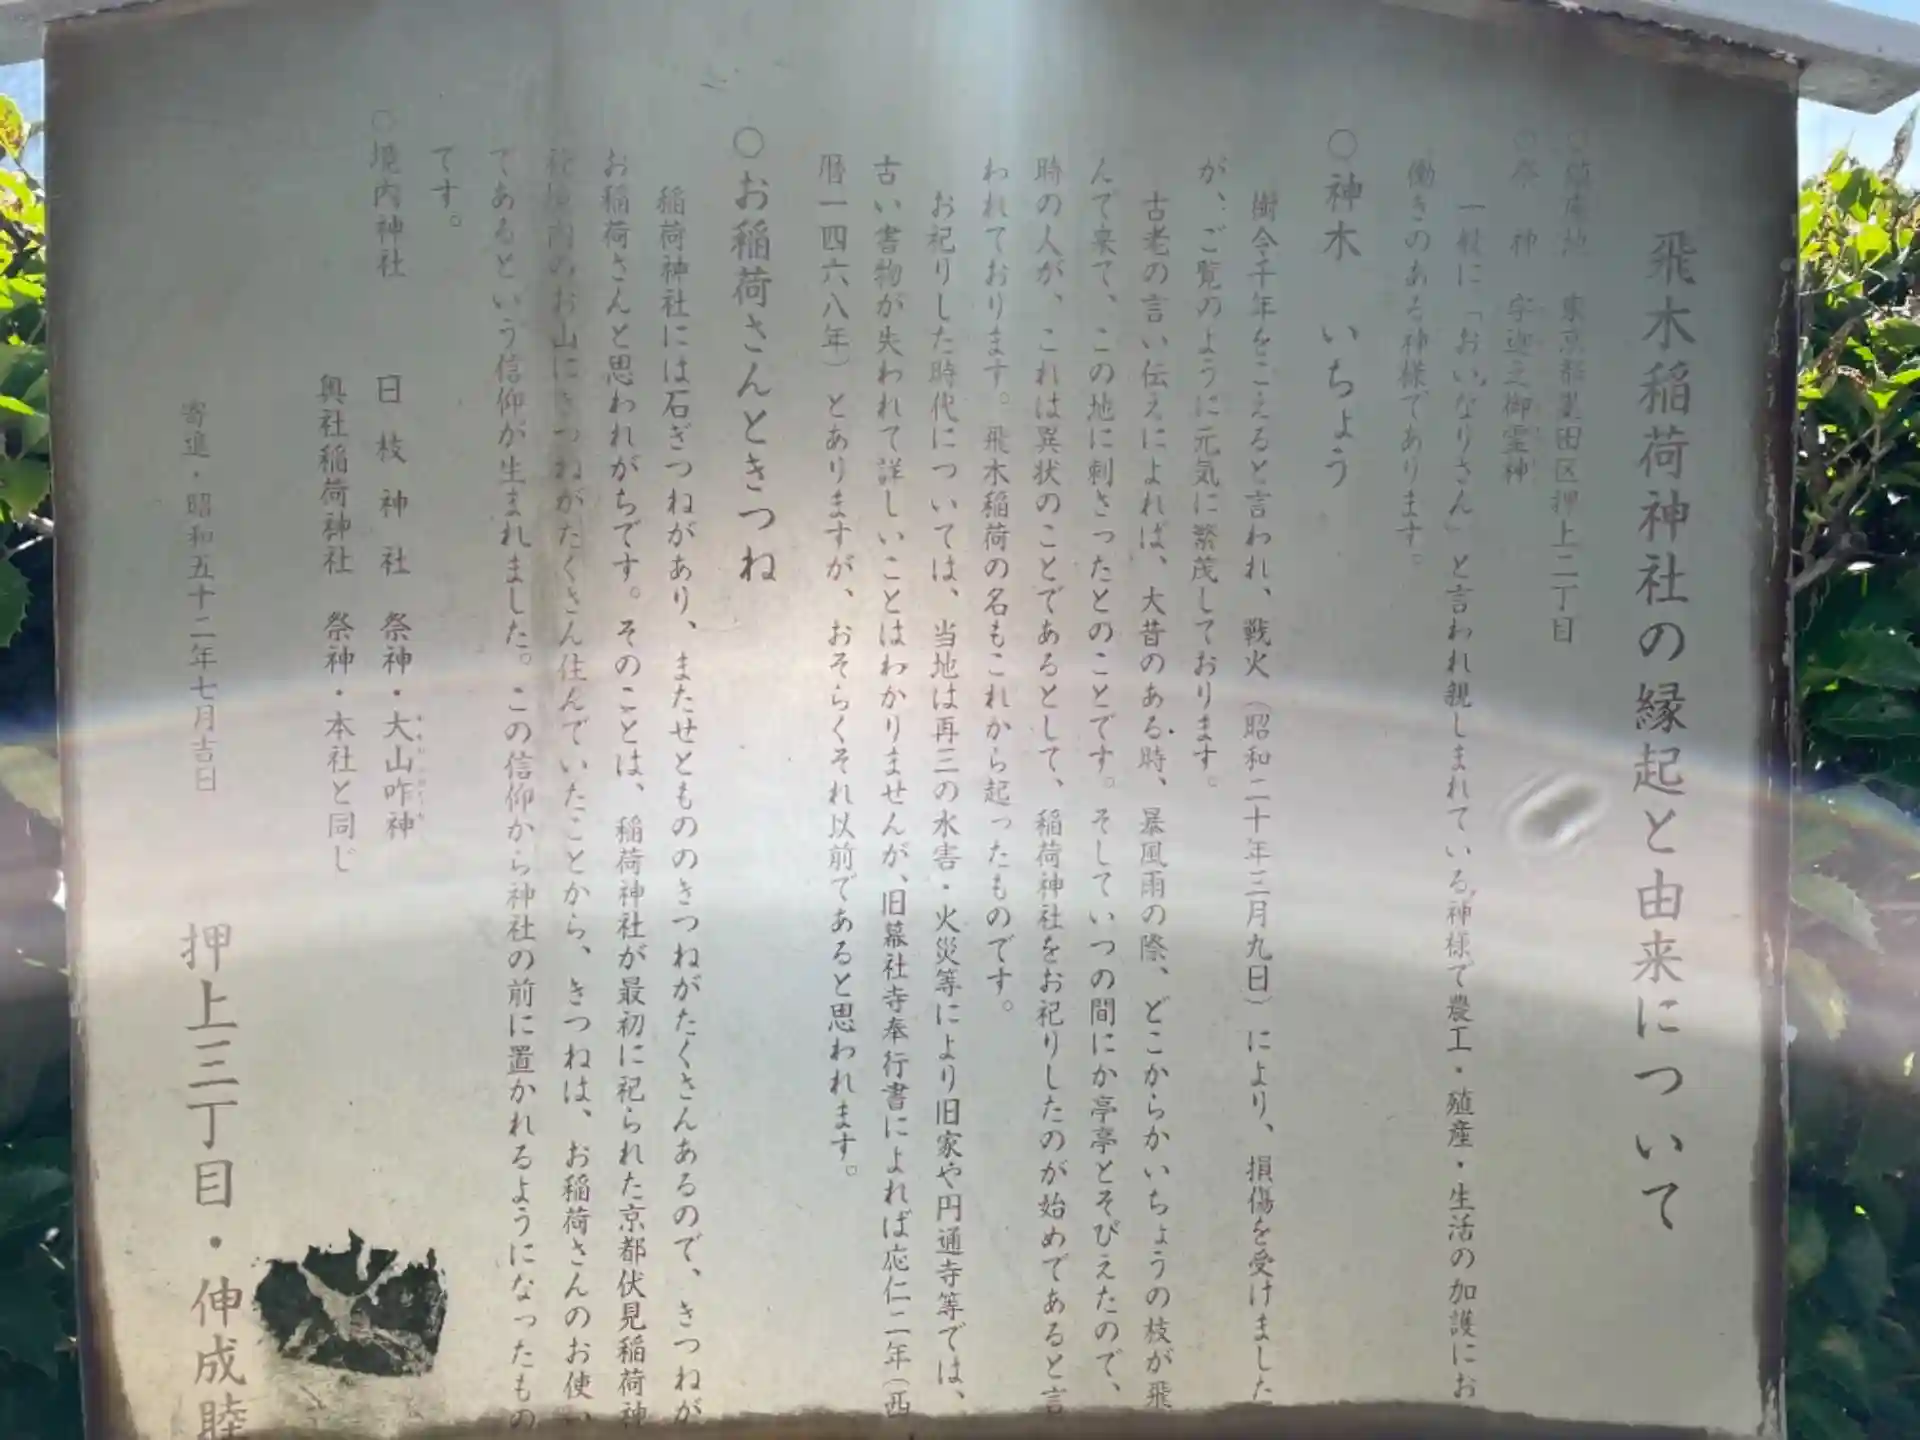 飛木稲荷神社の縁起と由来について
○鎮座地　東京都墨田区押上二丁目
○祭　神　宇迦之御霊神
一般に「おいなりさん」と言われ親しまれている神様で農工・殖産・生活の加護にお
働きのある神様であります。
○神木　いちょう
樹令千年をこえると言われ、戦火（昭和二十年三月九日）により、損傷を受けました
が、ご覧のように元気に繁茂しております。
古老の言い伝えによれば、大昔のある時、暴風雨の際、どこからかいちょうの枝が飛
んで来て、この地に刺さったとのことです。そしていつの間にか亭亭とそびえたので、
時の人が、これは異状のことであるとして、稲荷神社をお祀りしたのが始めであると言
われております。飛木稲荷の名もこれから起ったものです。
お祀りした時代については、当地は再三の水害・火災等により旧家や円通寺等では、
古い書物が失われて詳しいことはわかりませんが、旧幕社寺奉行書によれば応仁二年（西
暦一四六八年）とありますが、おそらくそれ以前であると思われます。
○お稲荷さんときつね
稲荷神社には石ぎつねがあり、またせともののきつねがたくさんあるので、きつねが
お稲荷さんと思われがちです。そのことは、稲荷神社が最初に祀られた京都伏見稲荷神
社境内のお山にきつねがたくさん住んでいたことから、きつねは、お稲荷さんのお使い
であるという信仰が生まれました。この信仰から神社の前に置かれるようになったもの
です。
○境内神社　日枝神社　祭神・大山咋神
奥社稲荷神社　祭神・本社と同じ
寄進・昭和五十二年七月吉日
押上三丁目・伸成睦